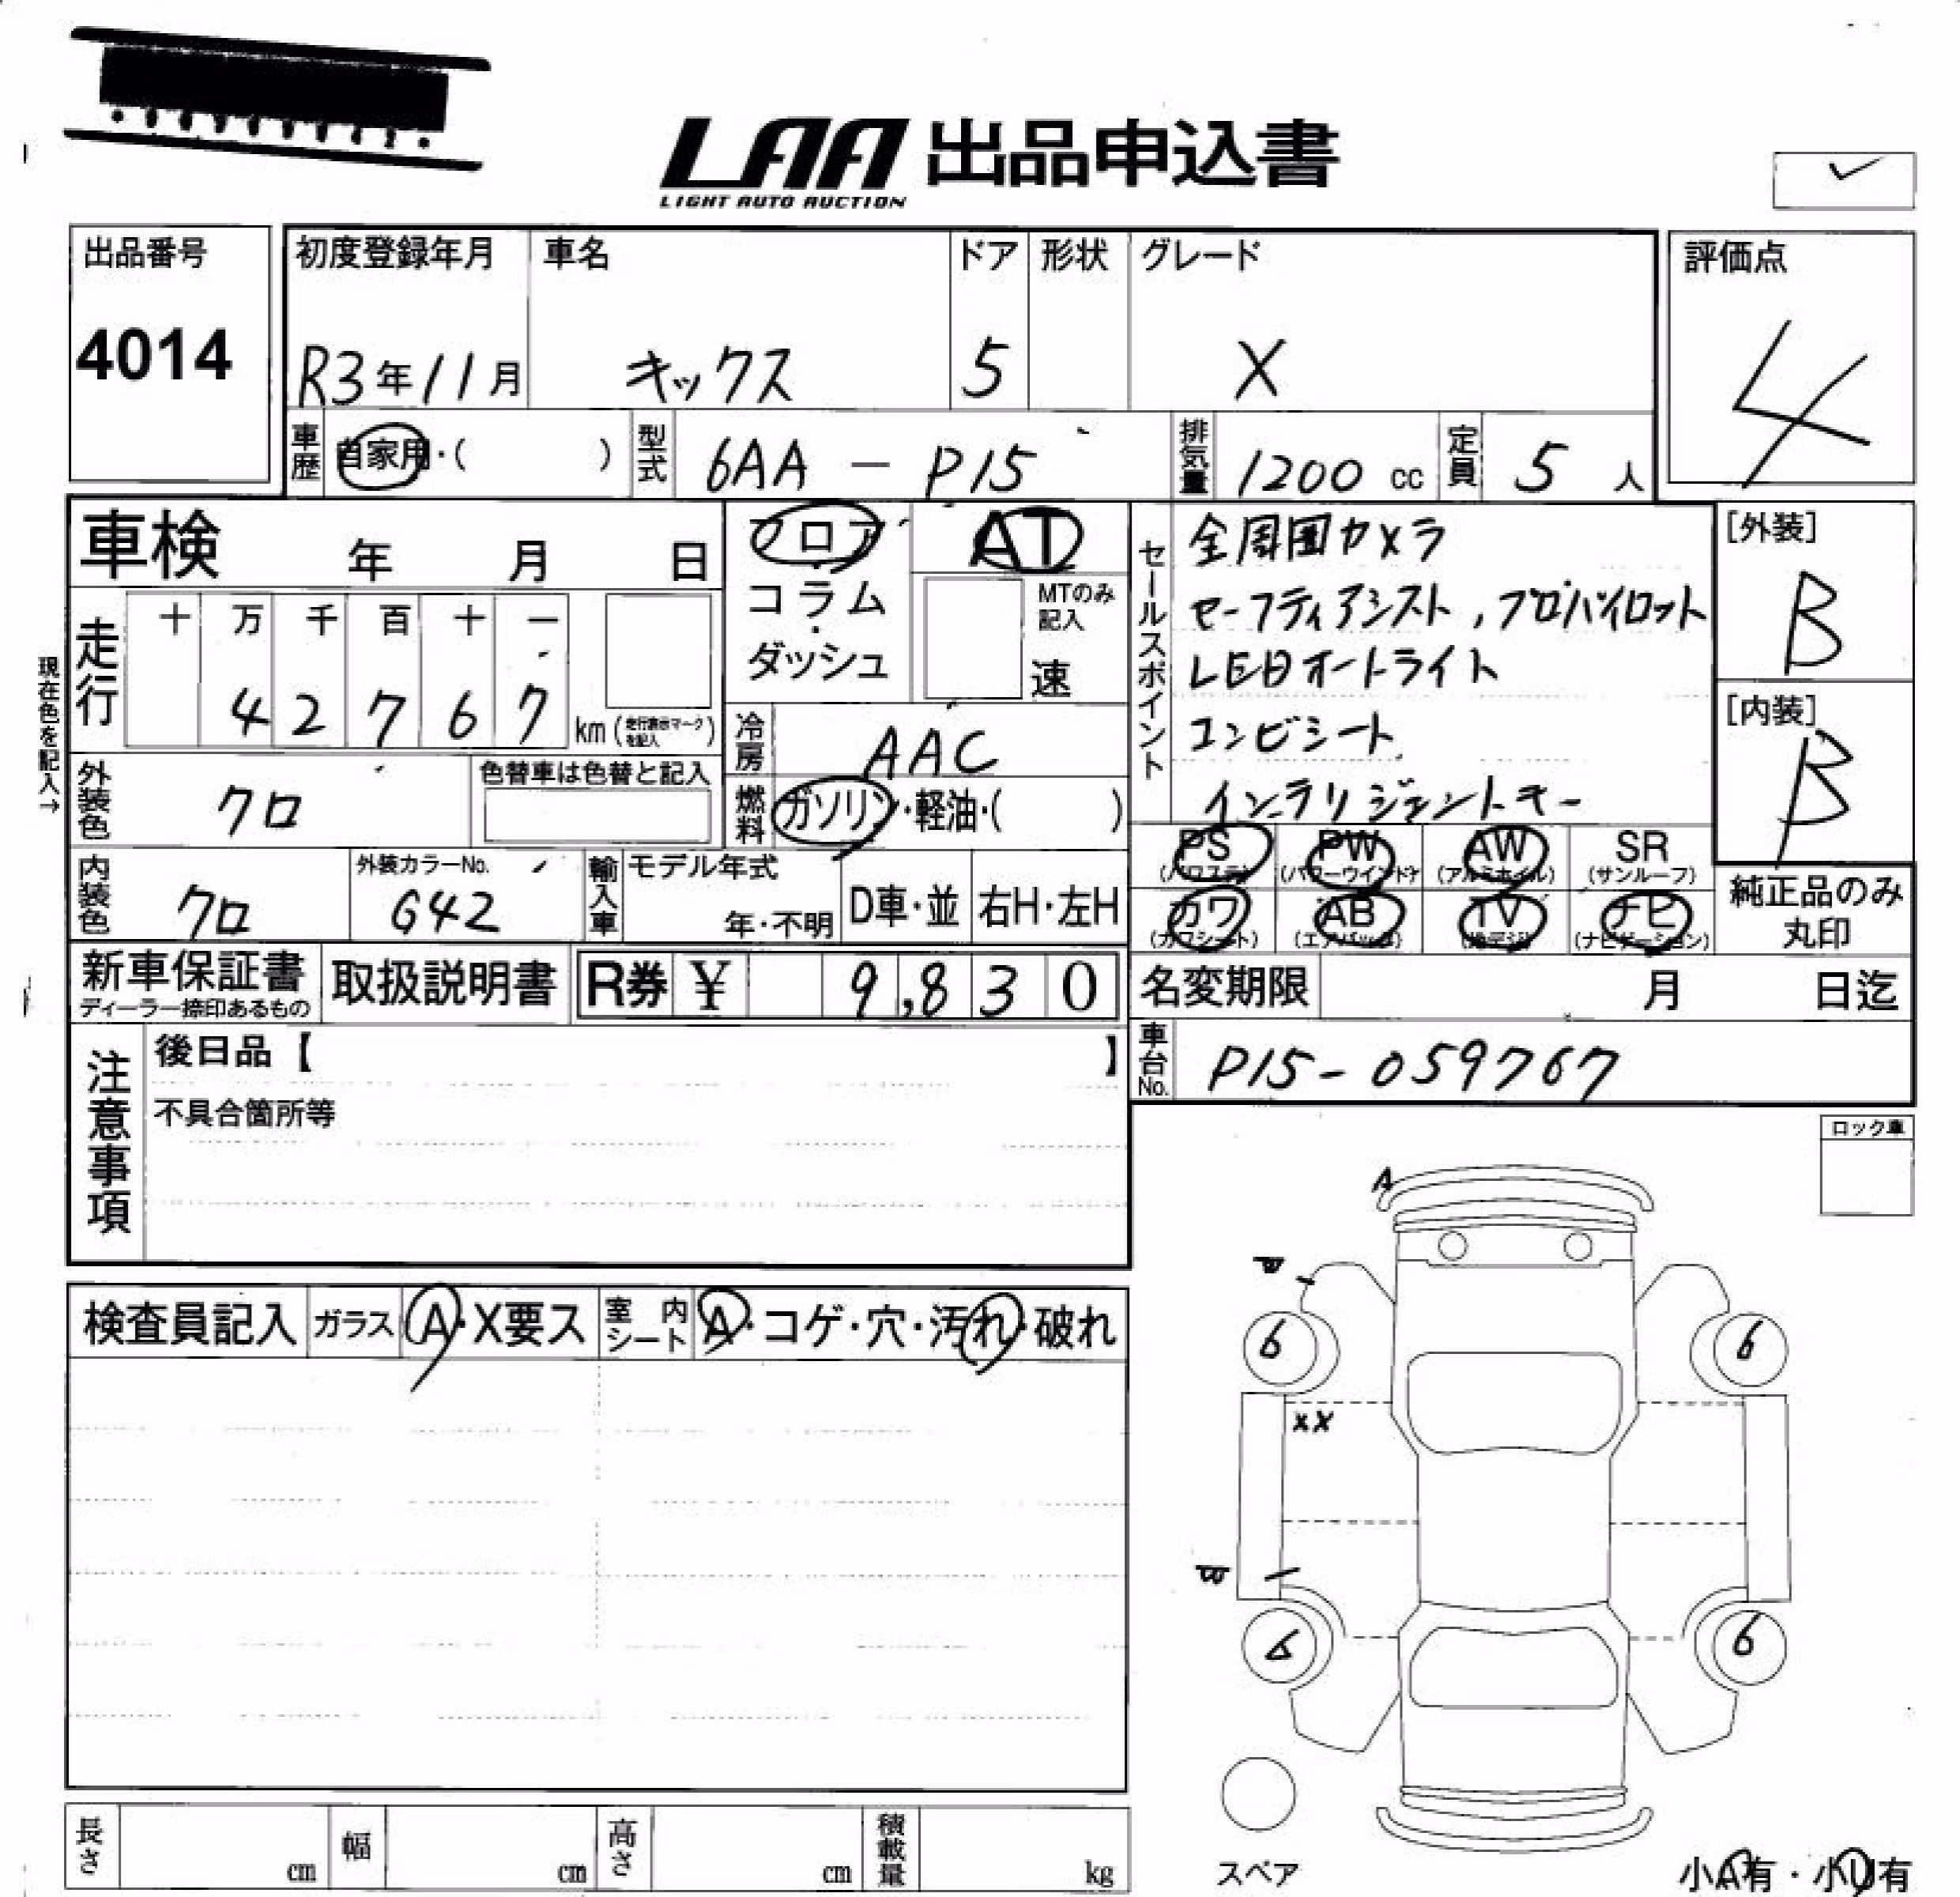 LAA 出品申込書
LIGHT AUTO AUCTION
出品番号 初度登録年月 車名 ドア 形状 グレード 評価点
4014 R3年11月 キックス 5 X 4
車歴 自家用・( ) 型式 6AA - P15 排気量 1200 cc 定員 5 人
車検 年 月 日 フロア AT
コラム・ダッシュ MTのみ記入 速
現在色を記入→
走行 十 万 千 百 十 一
4 2 7 6 7 km (走行表示マークを記入)
冷房 AAC
外装色 クロ 色替車は色替と記入
燃料 ガソリン・軽油・( )
内装色 クロ 外装カラーNo. G42 輸入車 モデル年式 年・不明 D車・並 右H・左H
セールスポイント
全周囲カメラ
セーフティアシスト, プロパイロット
LEDオートライト
コンビシート
インテリジェントキー
[外装]
B
[内装]
B
PS (パワステ) PW (パワーウインドケ) AW (アルミホイル) SR (サンルーフ)
カワ (カワシート) AB (エアバッグ) TV (地デジ) ナビ (ナビゲーション)
純正品のみ
丸印
新車保証書 ディーラー捺印あるもの 取扱説明書 R券 ¥ 9,830
名変期限 月 日迄
車台No. P15-059767
注意事項
後日品【 】
不具合箇所等
ロック車
検査員記入 ガラス A・X要ス 室内シート A・コゲ・穴・汚れ・破れ
A
6 6
XX
6 6
スペア
小A有・小U有
長さ cm 幅 cm 高さ cm 積載量 kg